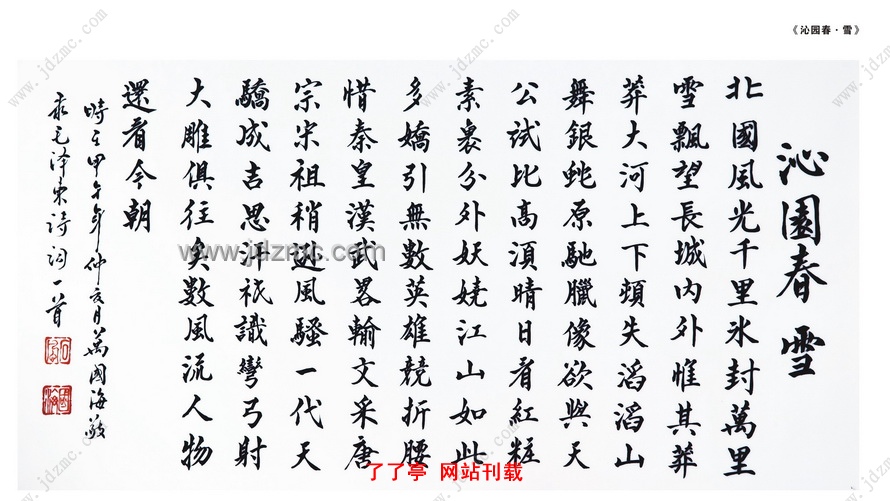 《沁园春·雪》
沁園春 雪
北國風光千里氷封萬里
雪飄望長城内外惟其莽
莽大河上下頓失滔滔山
舞銀蛇原馳臘像欲與天
公試比高湏晴日看紅粧
素裹分外妖嬈江山如此
多嬌引無數英雄競折腰
惜秦皇漢武畧輸文采唐
宗宋祖稍逊風騷一代天
驕成吉思汗祇識彎弓射
大雕俱往矣數風流人物
還看今朝
時在甲午年仲月萬國海敬
录毛泽东詩词一首
www.jdzmc.com
了了亭 网站刊载